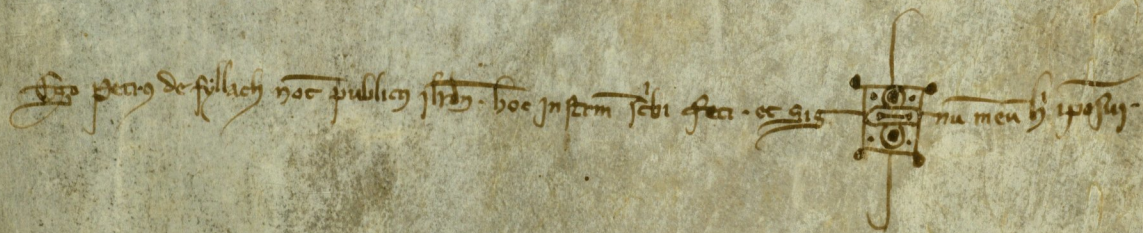 Ego petrus de fyllach not publicus ilrdn. hoc instrm scbi feci. et sig nu meu hi iposui.